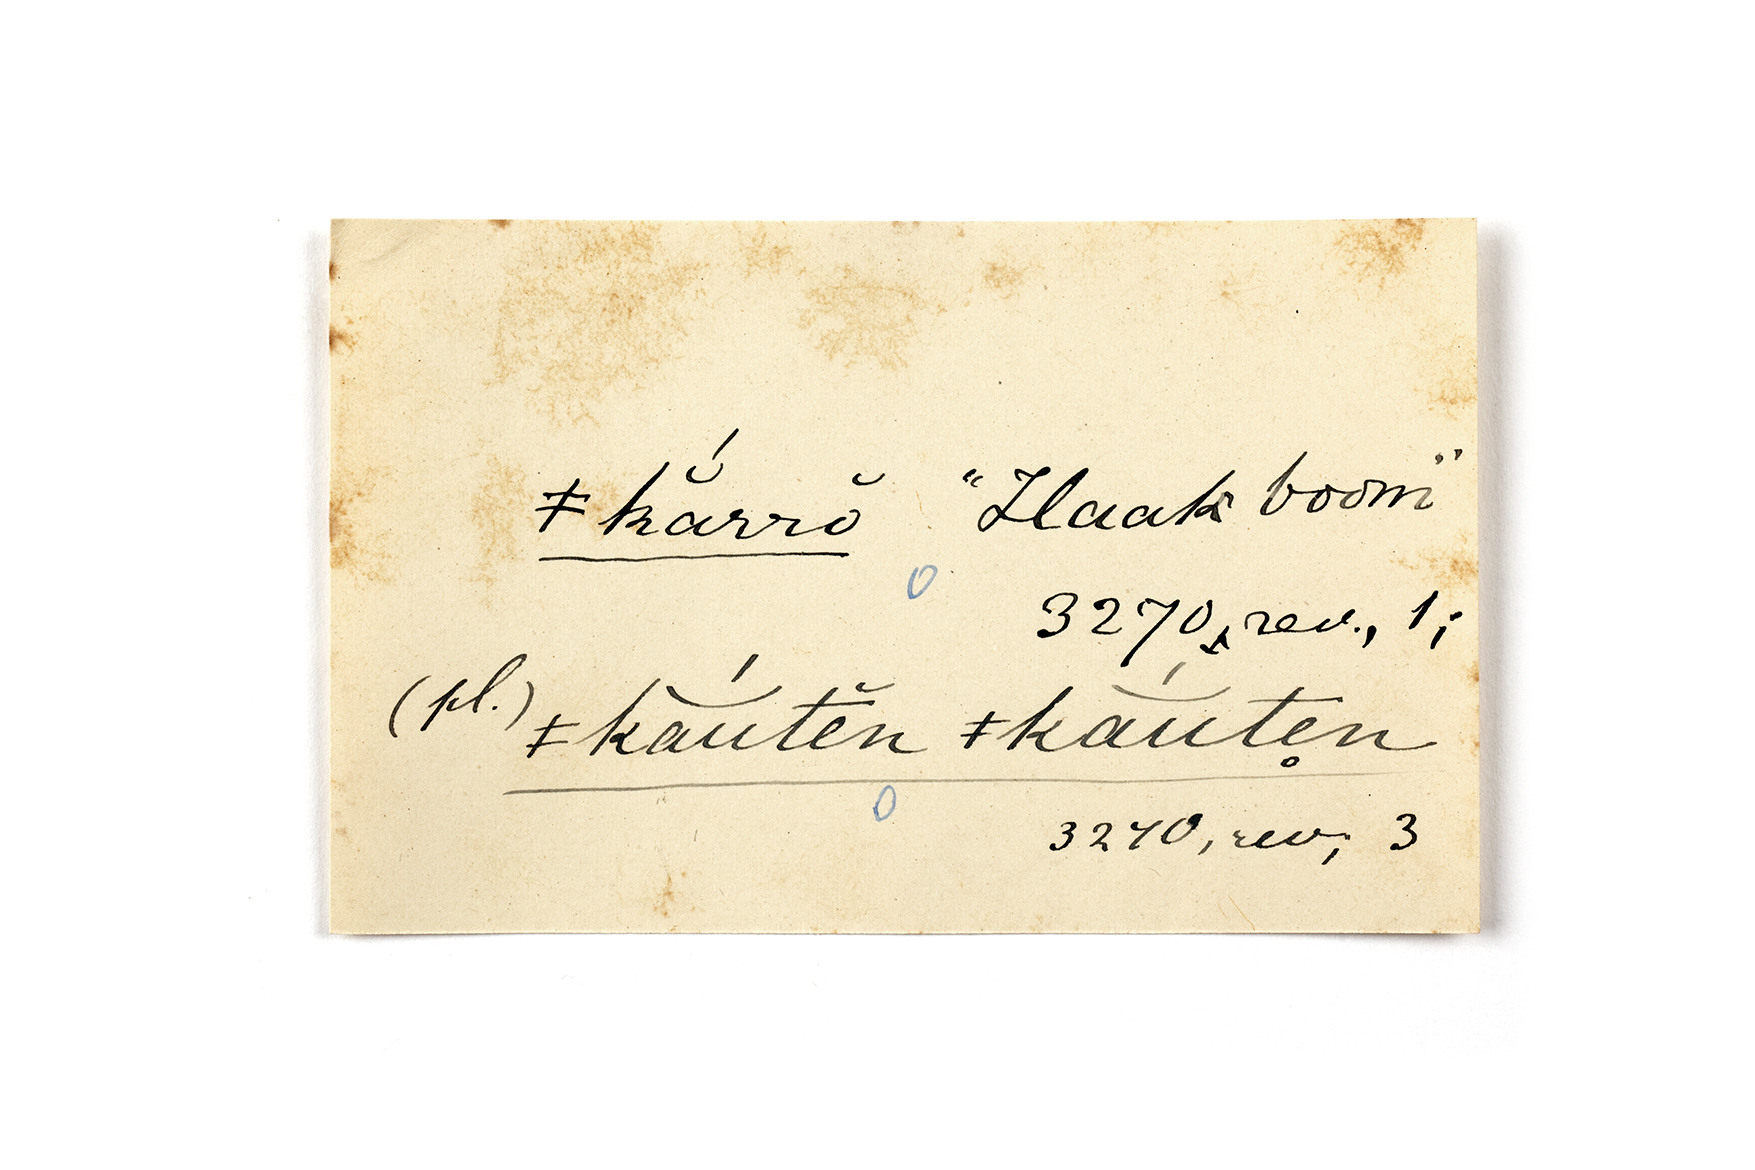 ǂkā̆́rrŏ "Haak boom"
0
3270, rev., 1;
(pl.) ǂkā̆́utĕn ǂkā̆́uten̥
0
3270, rev; 3